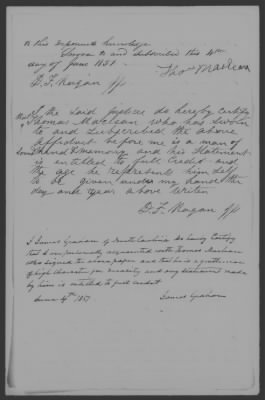 to this exposures hardships
Sworn to and subscribed this 4th
day of June 1851
Thos Maclean
D. F. Reagan JP
I the said Justice do hereby certify
that Thomas Maclean who has sworn
to and subscribed the above
affidavit before me is a man of
Sound mind & memory and his statement
is entitled to full credit and
the age he represents himself
to be given under my hand the
day and year above writen
D. F. Reagan JP
I James Graham of North Carolina do hereby Certify
that I am personally acquainted with Thomas Maclean
who signed the above paper and that he is a gentleman
of high character for veracity and any statement made
by him is entitled to full credit
June 4th 1851 James Graham